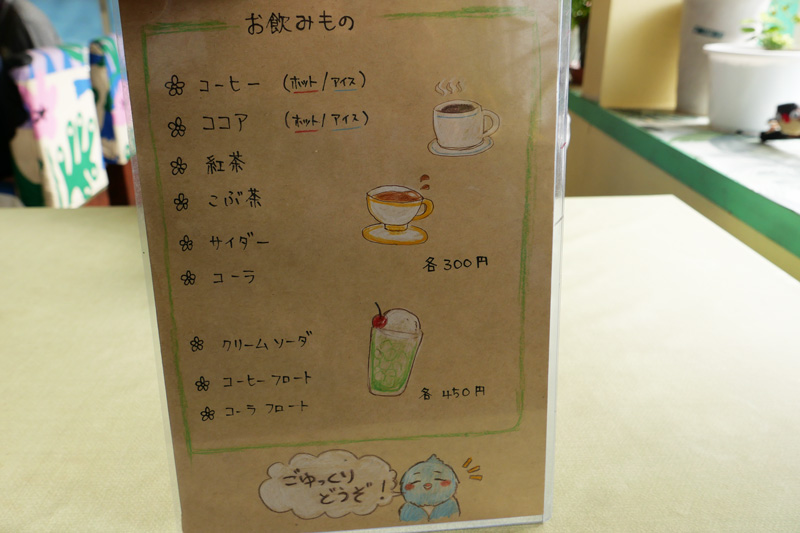 お飲みもの
コーヒー (ホット/アイス)
ココア (ホット/アイス)
紅茶
こぶ茶
サイダー
コーラ
各300円
クリームソーダ
コーヒーフロート
コーラフロート
各450円
ごゆっくり
どうぞ!